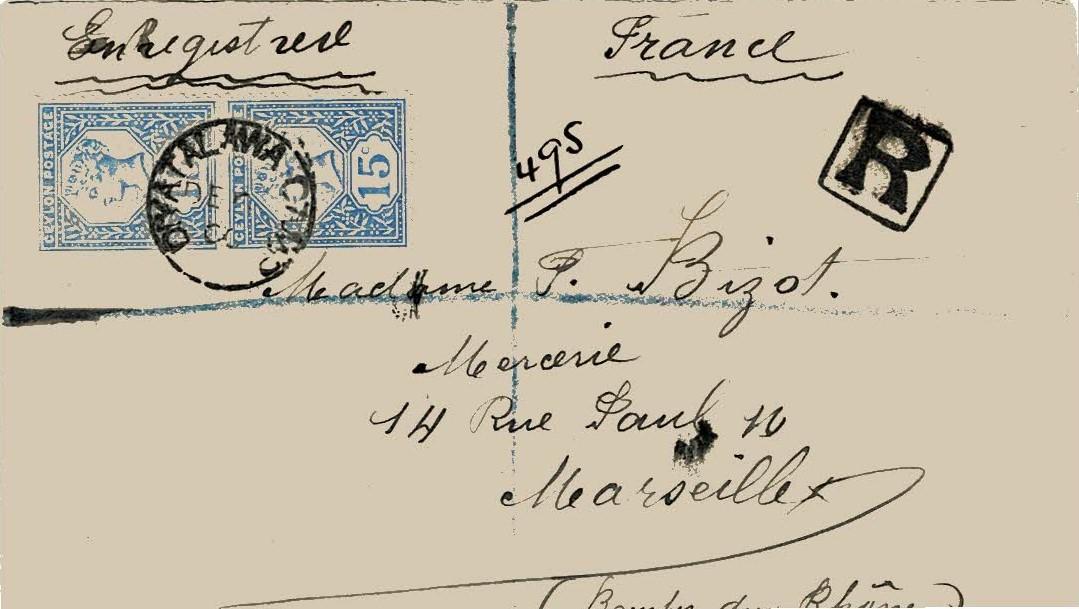 Enregistrée
France
CEYLON POSTAGE
CEYLON POSTAGE
15 c
DIYATALAWA CAMP
DE
R
495
Madame P. Bizot.
Mercerie
14 Rue
Marseille
(Bouches du Rhône)